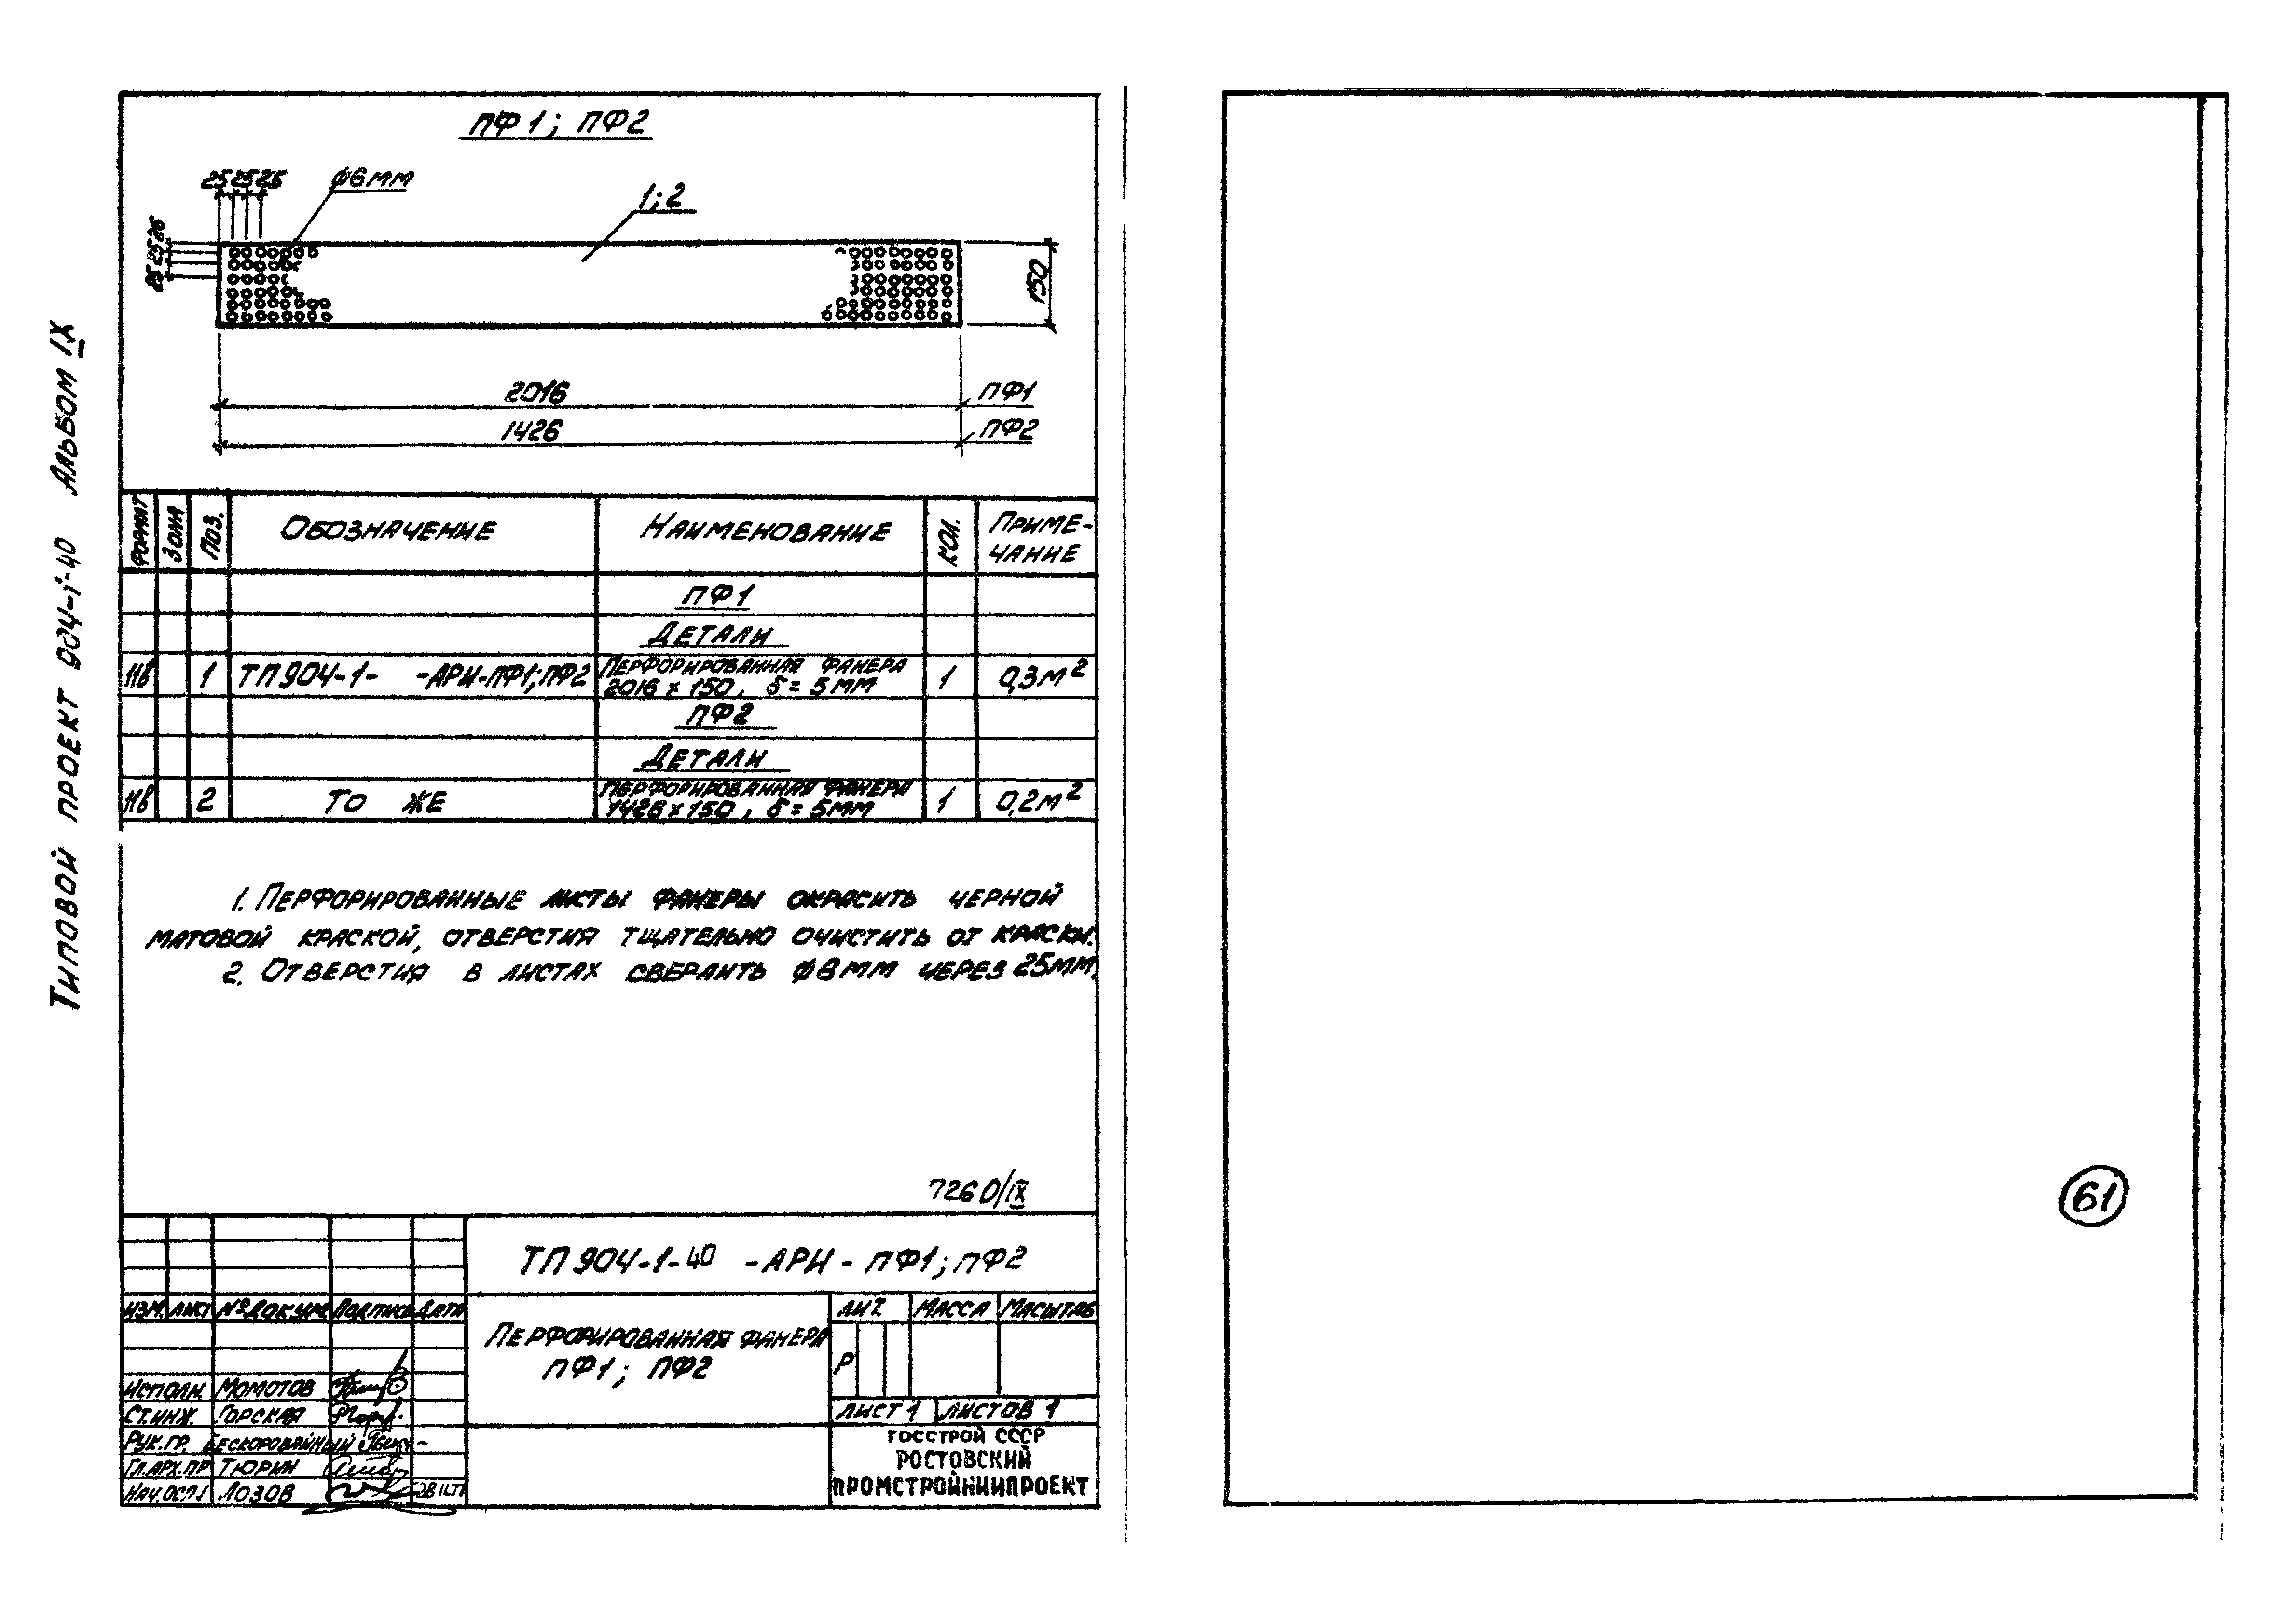 Типовой проект 904-1-40 Альбом IX
ПФ1; ПФ2
25 25 25
ф6мм
1; 2
25 25 25
150
2016 ПФ1
1426 ПФ2
Формат Зона Поз. Обозначение Наименование Кол. Приме-
чание
ПФ1
Детали
11В 1 ТП 904-1- -АРИ-ПФ1; ПФ2 Перфорированная фанера
2016 x 150, δ = 5мм 1 0,3м²
ПФ2
Детали
11В 2 То же Перфорированная фанера
1426 x 150, δ = 5мм 1 0,2м²
1. Перфорированные листы фанеры окрасить черной
матовой краской, отверстия тщательно очистить от краски.
2. Отверстия в листах сверлить ф6мм через 25мм.
7260/IX
ТП 904-1-40 -АРИ - ПФ1; ПФ2
Изм. Лист №Докум Подпись Дата
Перфорированная фанера
ПФ1; ПФ2
Лит. Масса Масштаб
Р
Лист 1 Листов 1
Исполн. Момотов
Ст.инж. Горская
Рук.гр. Бескоровайный
Гл.арх.пр Тюрин
Нач.ОСП1 Лозов
Госстрой СССР
Ростовский
Промстройниипроект
61